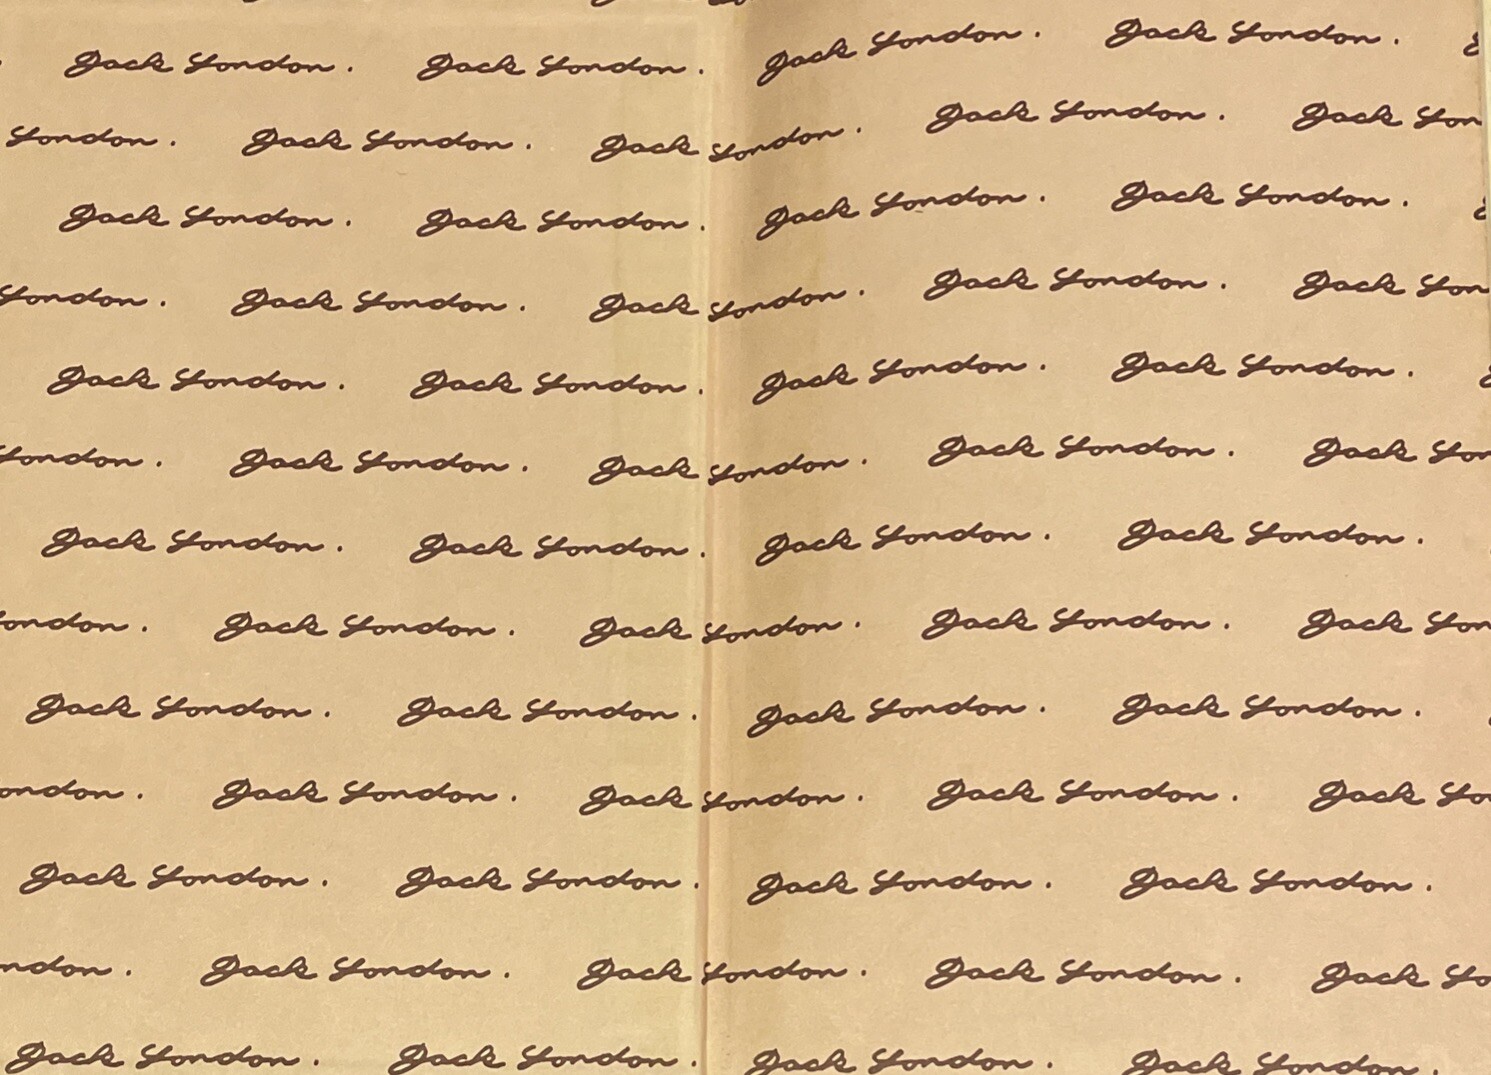 Jack London. Jack London. Jack London. Jack London.
London. Jack London. Jack London. Jack London. Jack Lon
Jack London. Jack London. Jack London. Jack London.
London. Jack London. Jack London. Jack London. Jack Lon
Jack London. Jack London. Jack London. Jack London.
London. Jack London. Jack London. Jack London. Jack Lon
Jack London. Jack London. Jack London. Jack London.
ondon. Jack London. Jack London. Jack London. Jack Lon
Jack London. Jack London. Jack London. Jack London.
ondon. Jack London. Jack London. Jack London. Jack Lo
Jack London. Jack London. Jack London. Jack London.
ndon. Jack London. Jack London. Jack London. Jack Lo
Jack London. Jack London. Jack London. Jack London.